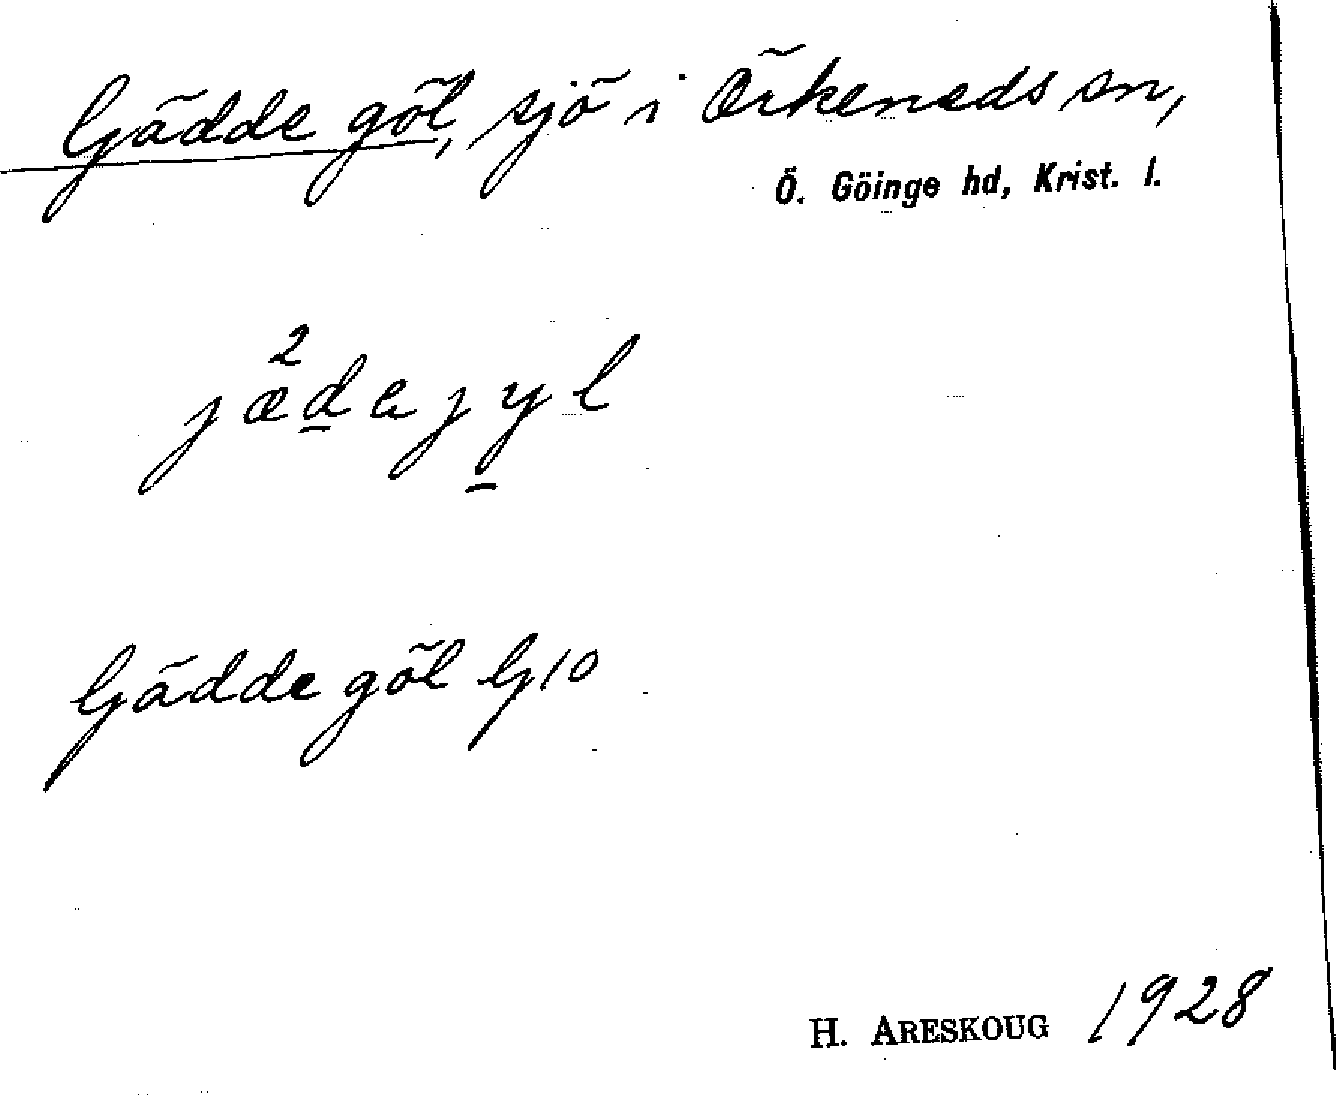 Gädde göl, sjö i Örkeneds sn,
Ö. Göinge hd, Krist. l.
2
jædejyl
Gädde göl G10
H. ARESKOUG 1928